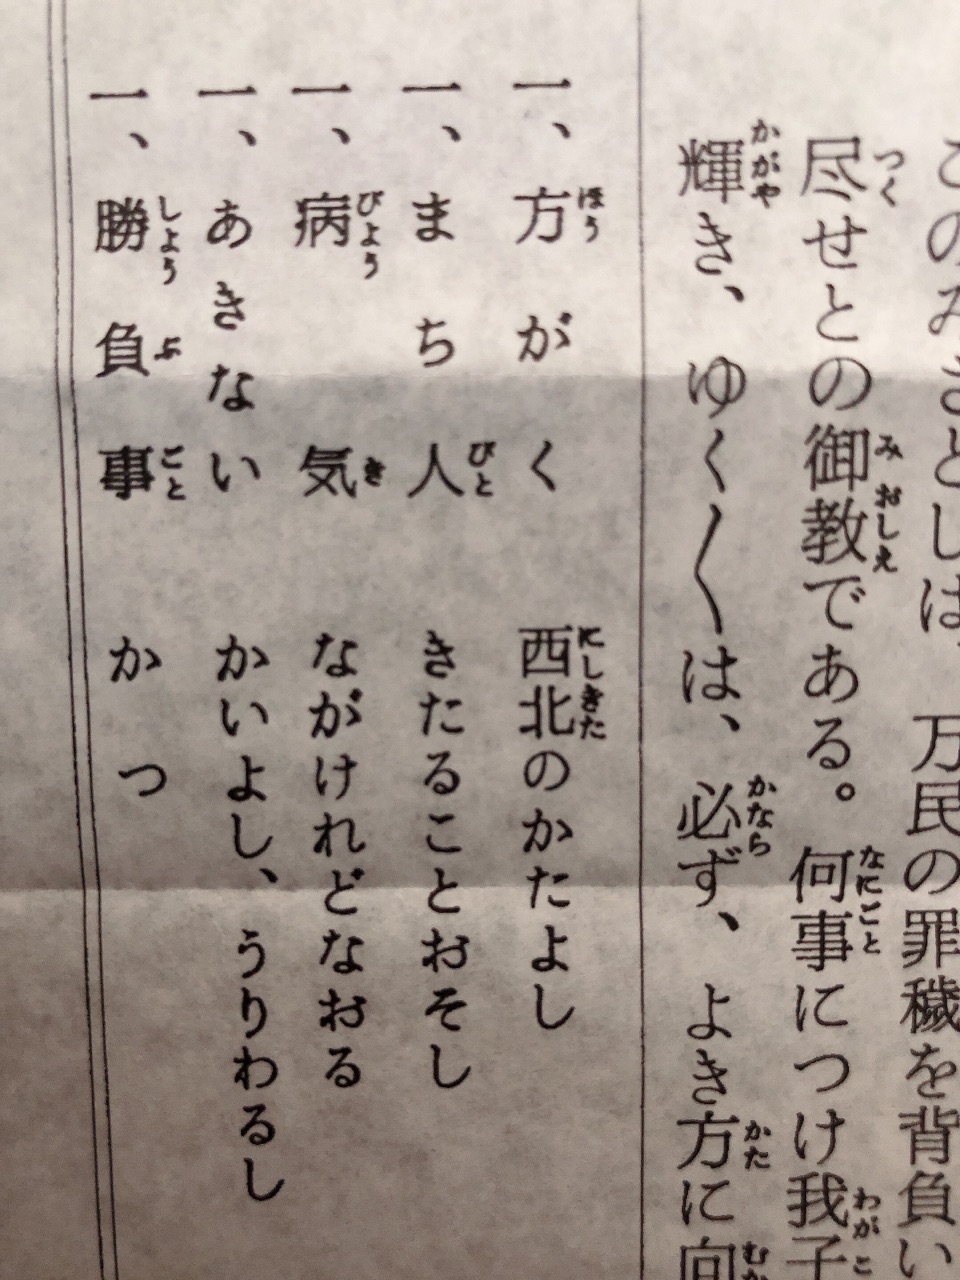 このみさとしは、万民の罪穢を背負い
尽せとの御教である。何事につけ我子
輝き、ゆく〳〵は、必ず、よき方に向
一、方がく 西北のかたよし
一、まち人 きたることおそし
一、病気 ながけれどなおる
一、あきない かいよし、うりわるし
一、勝負事 かつ